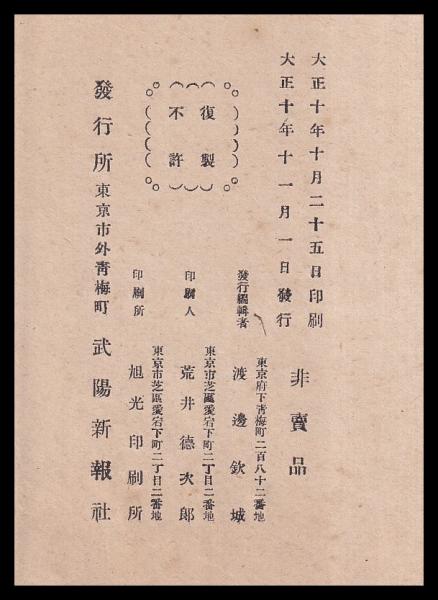 大正十年十月二十五日印刷
大正十年十一月一日發行
非賣品
復製
不許
發行編輯者
東京府下青梅町二百八十二番地
渡邊欽城
印刷人
東京市芝區愛宕下町二丁目二番地
荒井德次郎
印刷所
東京市芝區愛宕下町二丁目二番地
旭光印刷所
發行所 東京市外青梅町 武陽新報社